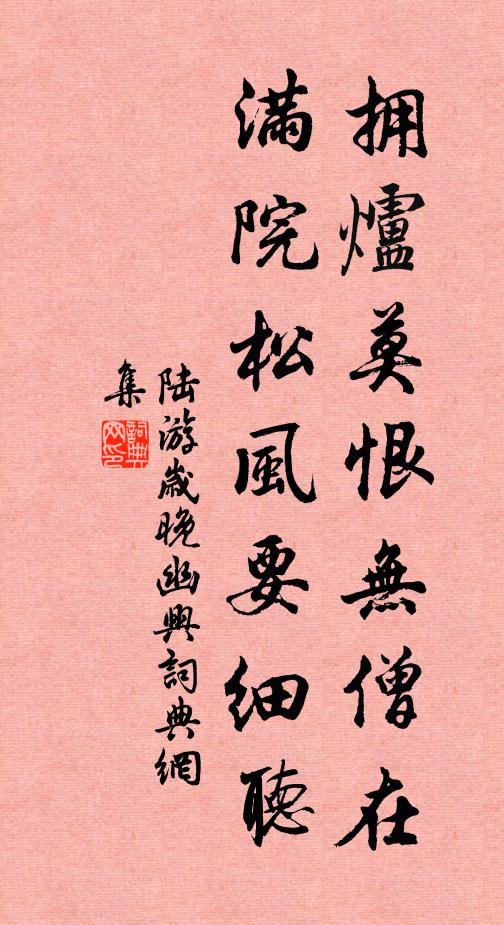 拥爐莫恨無僧在
滿院松風要細聽
陆游歲晚幽興詞典網
集
詞典
网印